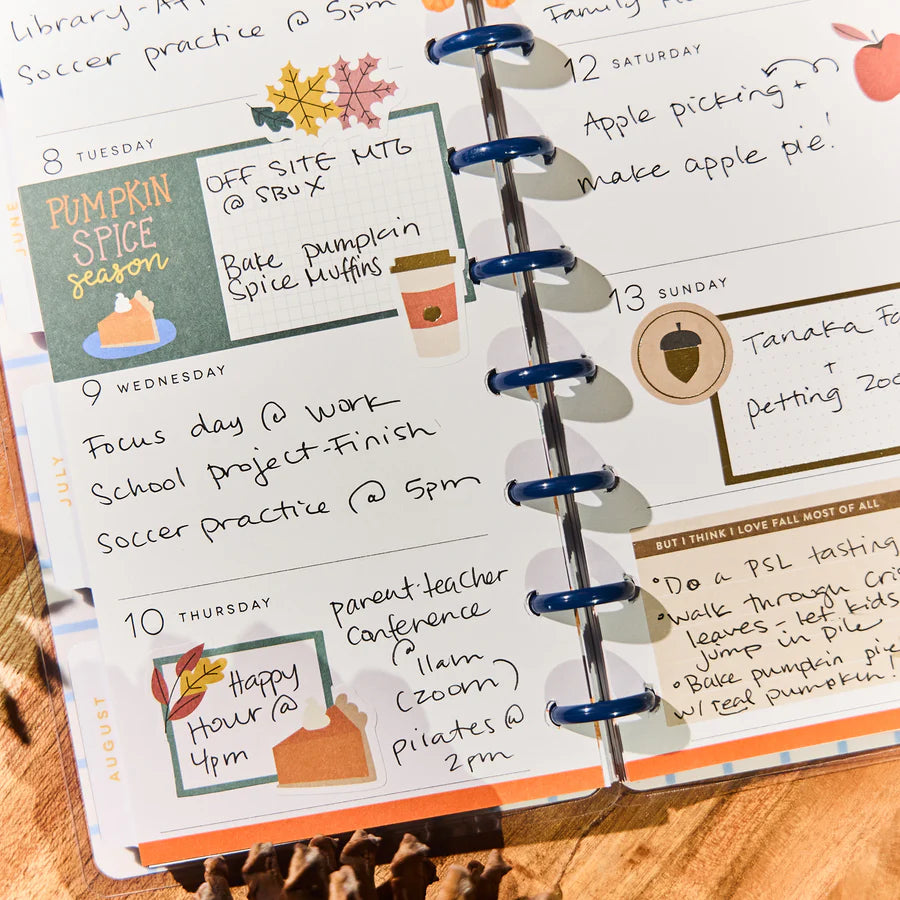 Library-
Soccer practice @ 5pm
8 TUESDAY
PUMPKIN
SPICE
season
OFF SITE MTG
@ SBUX
Bake pumpkin
Spice Muffins
JUNE
9 WEDNESDAY
Focus day @ work
School project-Finish
Soccer practice @ 5pm
JULY
10 THURSDAY
Happy
Hour @
4pm
parent-teacher
Conference
@
11am
(zoom)
pilates @
2pm
AUGUST
Family
12 SATURDAY
Apple picking +
make apple pie!
13 SUNDAY
Tanaka
+
petting
BUT I THINK I LOVE FALL MOST OF ALL
•Do a PSL tasting
•Walk through
leaves - let kids
jump in pile
•Bake pumpkin pie
w/ real pumpkin!